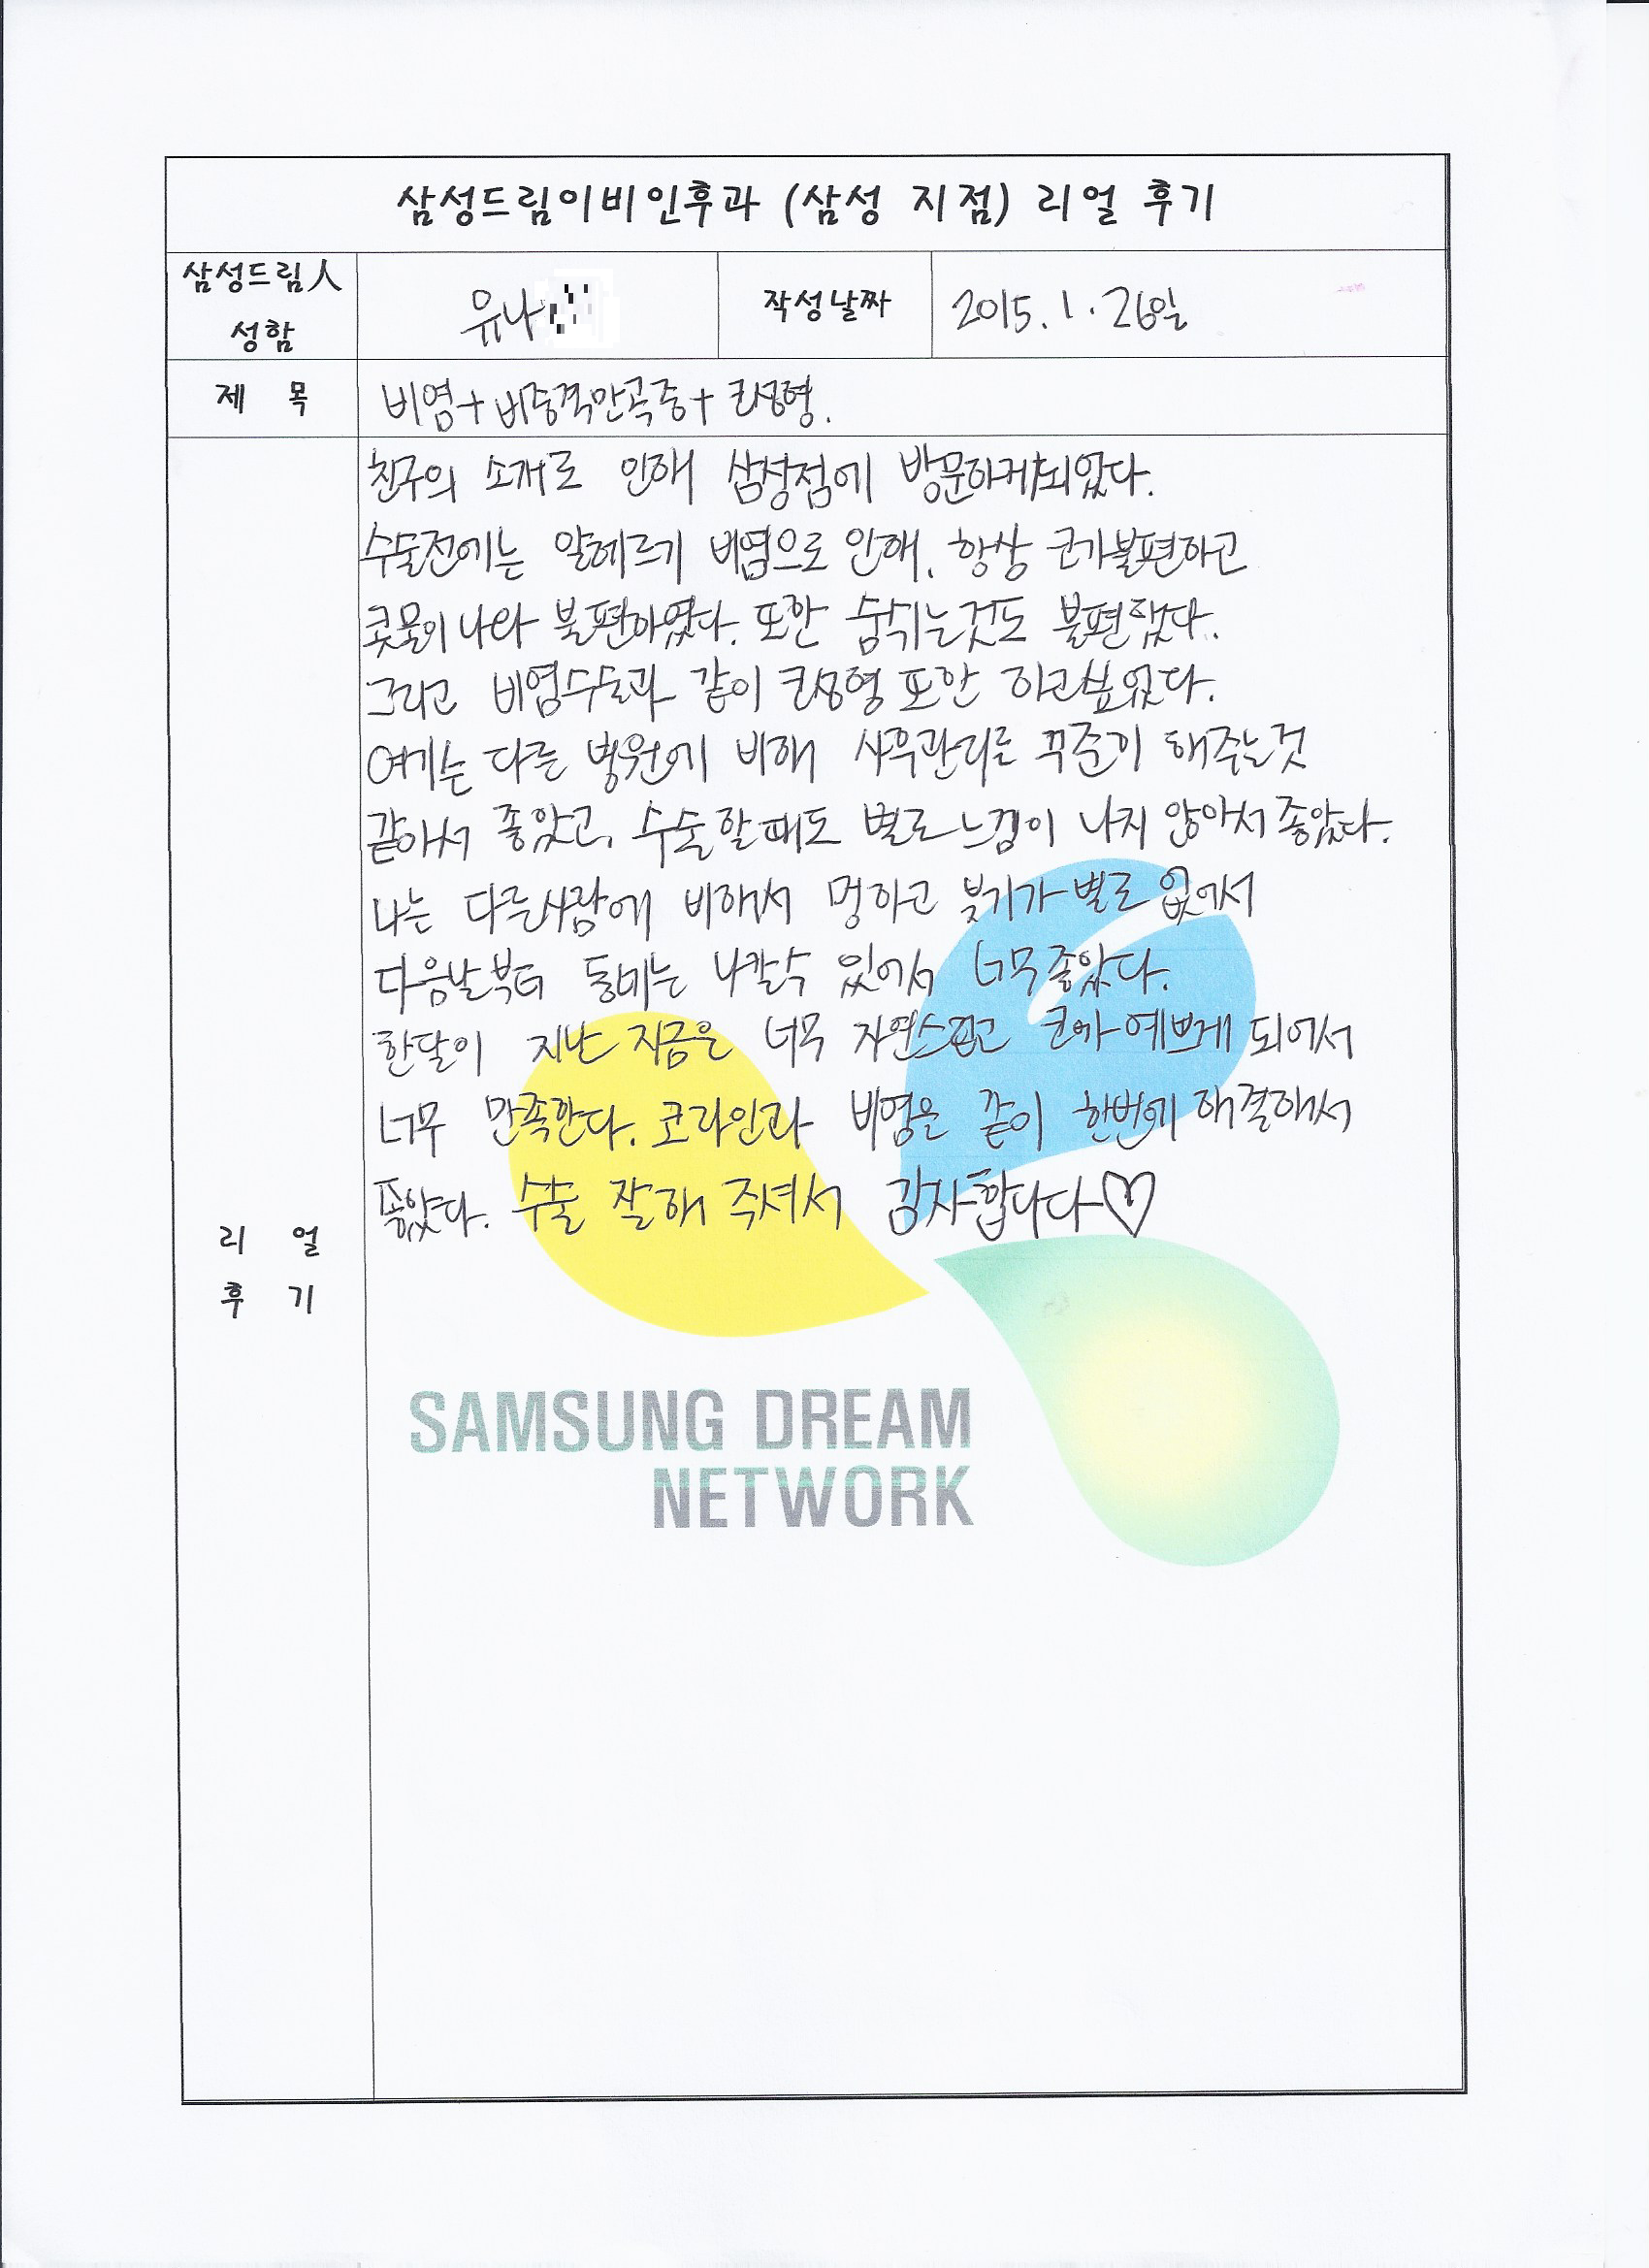 삼성드림이비인후과 (삼성 지점) 리얼 후기
삼성드림人
성함
유나
작성날짜
2015. 1. 26일
제 목
비염+비중격만곡증+코성형.
친구의 소개로 인해 삼성점에 방문하게되었다.
수술전에는 알레르기 비염으로 인해, 항상 코가불편하고
콧물이 나와 불편하였다. 또한 숨쉬는것도 불편했다.
그리고 비염수술과 같이 코성형 또한 하고싶었다.
여기는 다른 병원에 비해 사후관리를 꾸준히 해주는것
같아서 좋았고, 수술할때도 별로 느낌이 나지 않아서 좋았다.
나는 다른사람에 비해서 멍하고 붓기가 별로 없어서
다음날부터 동네는 나갈수 있어서 너무 좋았다.
한달이 지난 지금은 너무 자연스럽고 코가 예쁘게 되어서
너무 만족한다. 코라인과 비염은 같이 한번에 해결해서
좋았다. 수술 잘해 주셔서 감사합니다♡
리 얼
후 기
SAMSUNG DREAM
NETWORK